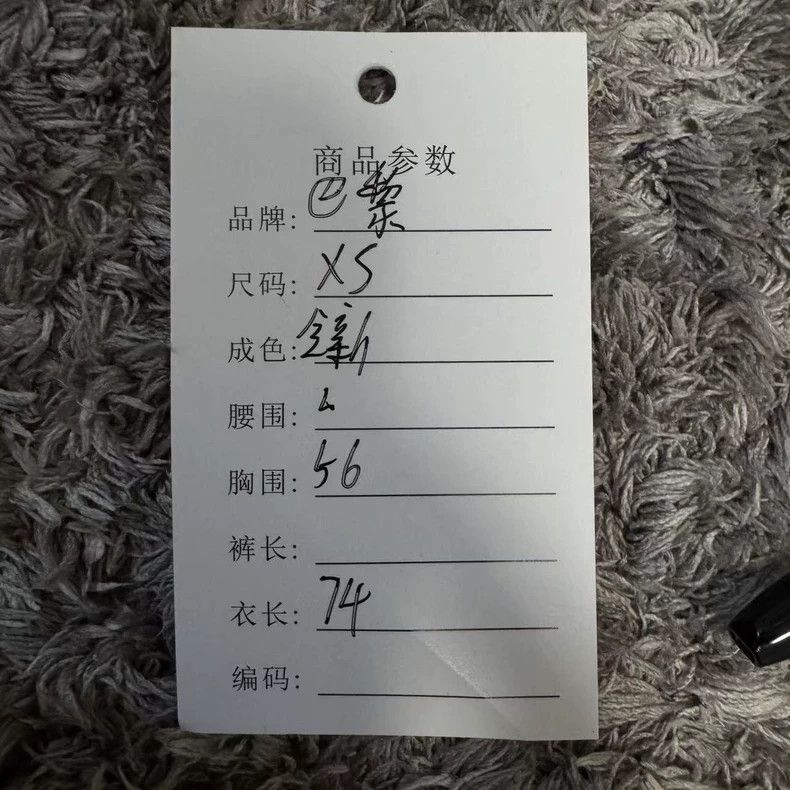 商品参数
品牌: 巴黎
尺码: XS
成色: 全新
腰围:
胸围: 56
裤长:
衣长: 74
编码: